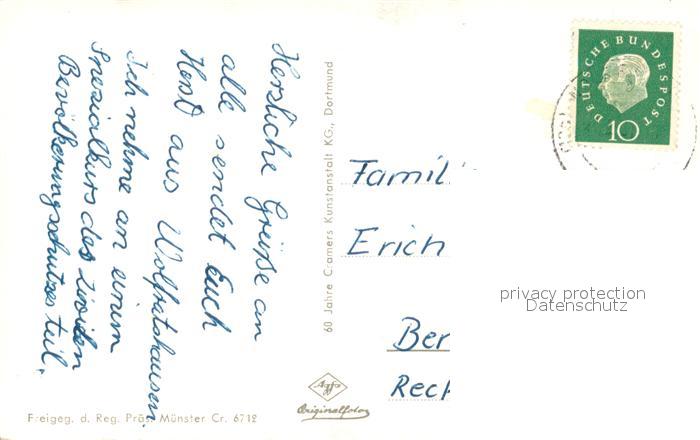 Herzliche Grüße an
alle sendet Euch
Horst aus Wolfratshausen.
Ich nehme an einem
Spezialkurs des zivilen
Bevölkerungsschutzes teil.
60 Jahre Cramers Kunstanstalt KG., Dortmund
DEUTSCHE BUNDESPOST
10
Famil
Erich
Ber
Rech
privacy protection
Datenschutz
Agfa
Originalfoto
Freigeg. d. Reg. Präs. Münster Cr. 6712